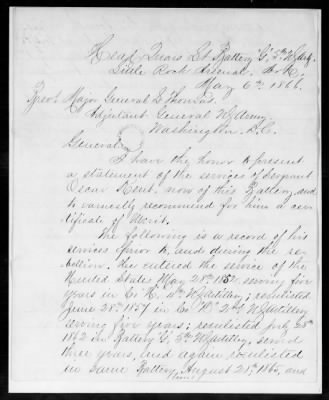 Head Quars Lt. Battery "G", 5th US Art.
Little Rock Arsenal, Ark,
May 6th 1866.
Brevt Major General L. Thomas.
Adjutant General US Army
Washington. D.C.
General:
I have the honor to present
a statement of the services of Sergeant
Oscar Kent. now of this Battery, and
to earnestly recommend for him a cer-
tificate of Merit.
The following is a record of his
services prior to, and during the re-
bellion. He entered the service of the
United States May 28th 1852. serving five
years in Co. K. 4th US Artillery; reenlisted
June 28th 1857 in Co "H" 2nd US Artillery
serving five years; reenlisted July 25th
1862 in Battery G, 5th US Artillery, served
three years, and again reenlisted
in same Battery, August 21st, 1865, and